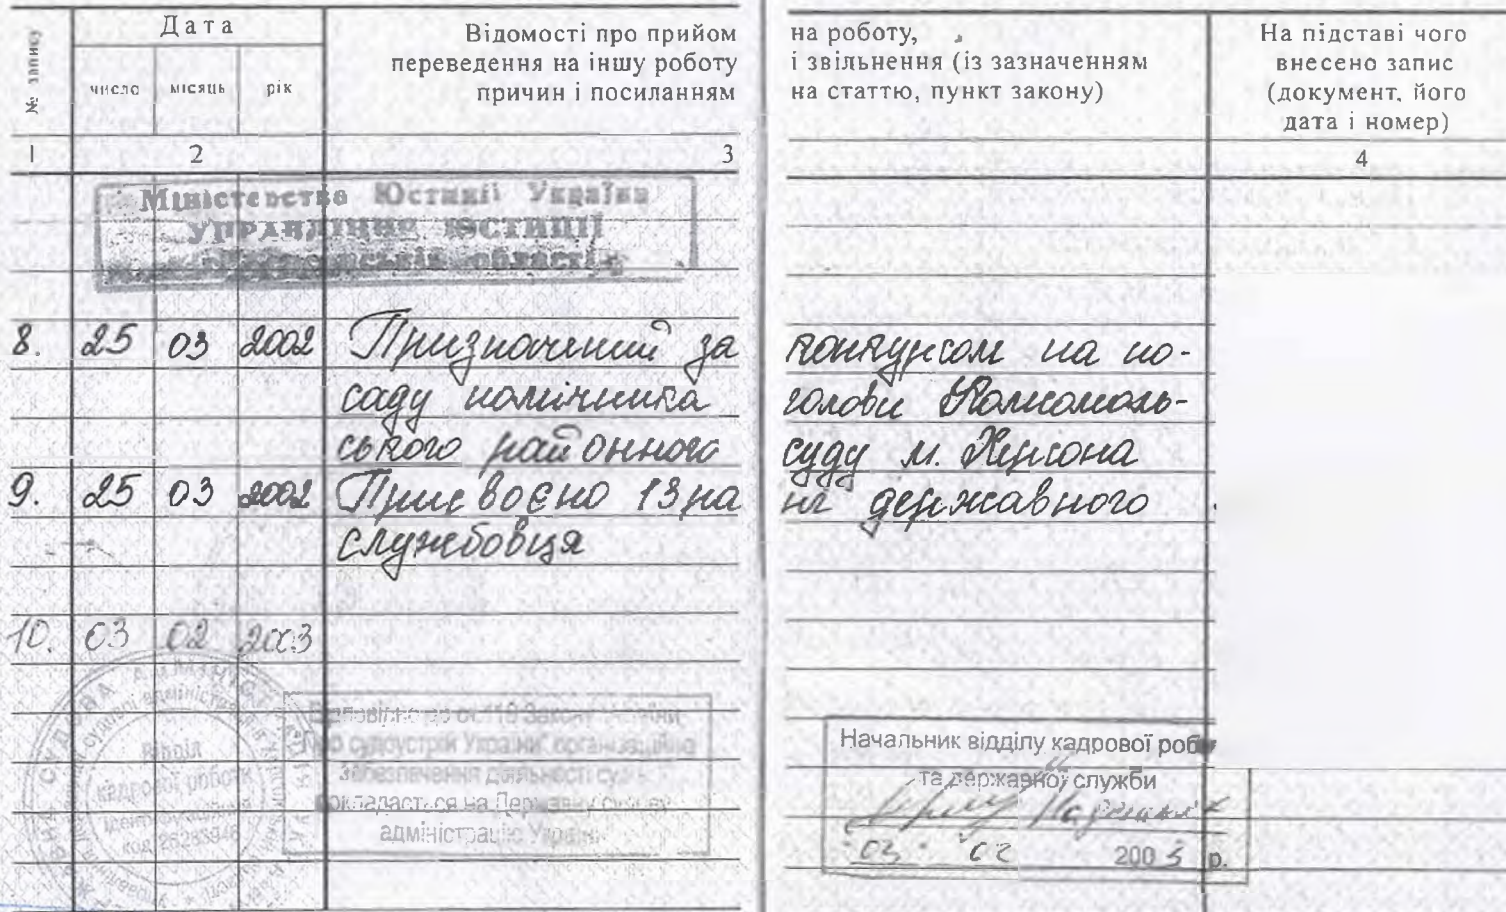 № запису
Дата
число місяць рік
Відомості про прийом на роботу,
переведення на іншу роботу і звільнення (із зазначенням
причин і посиланням на статтю, пункт закону)
На підставі чого
внесено запис
(документ, його
дата і номер)
1 2 3 4
Міністерство Юстиції України
УПРАВЛІННЯ ЮСТИЦІЇ
області
8. 25 03 2002 Призначений за конкурсом на по-
саду помічника голови Комсомоль-
ського районного суду м. Херсона
9. 25 03 2002 Присвоєно 13 ранг державного
службовця
10. 03 02 2003
Відповідно до ст. 118 Закону України
"Про судоустрій України" організаційне
забезпечення діяльності судів
покладається на Державну судову
адміністрацію України
Відділ
кадрової роботи
код
Начальник відділу кадрової роб
та державної служби
03 02 2003 р.